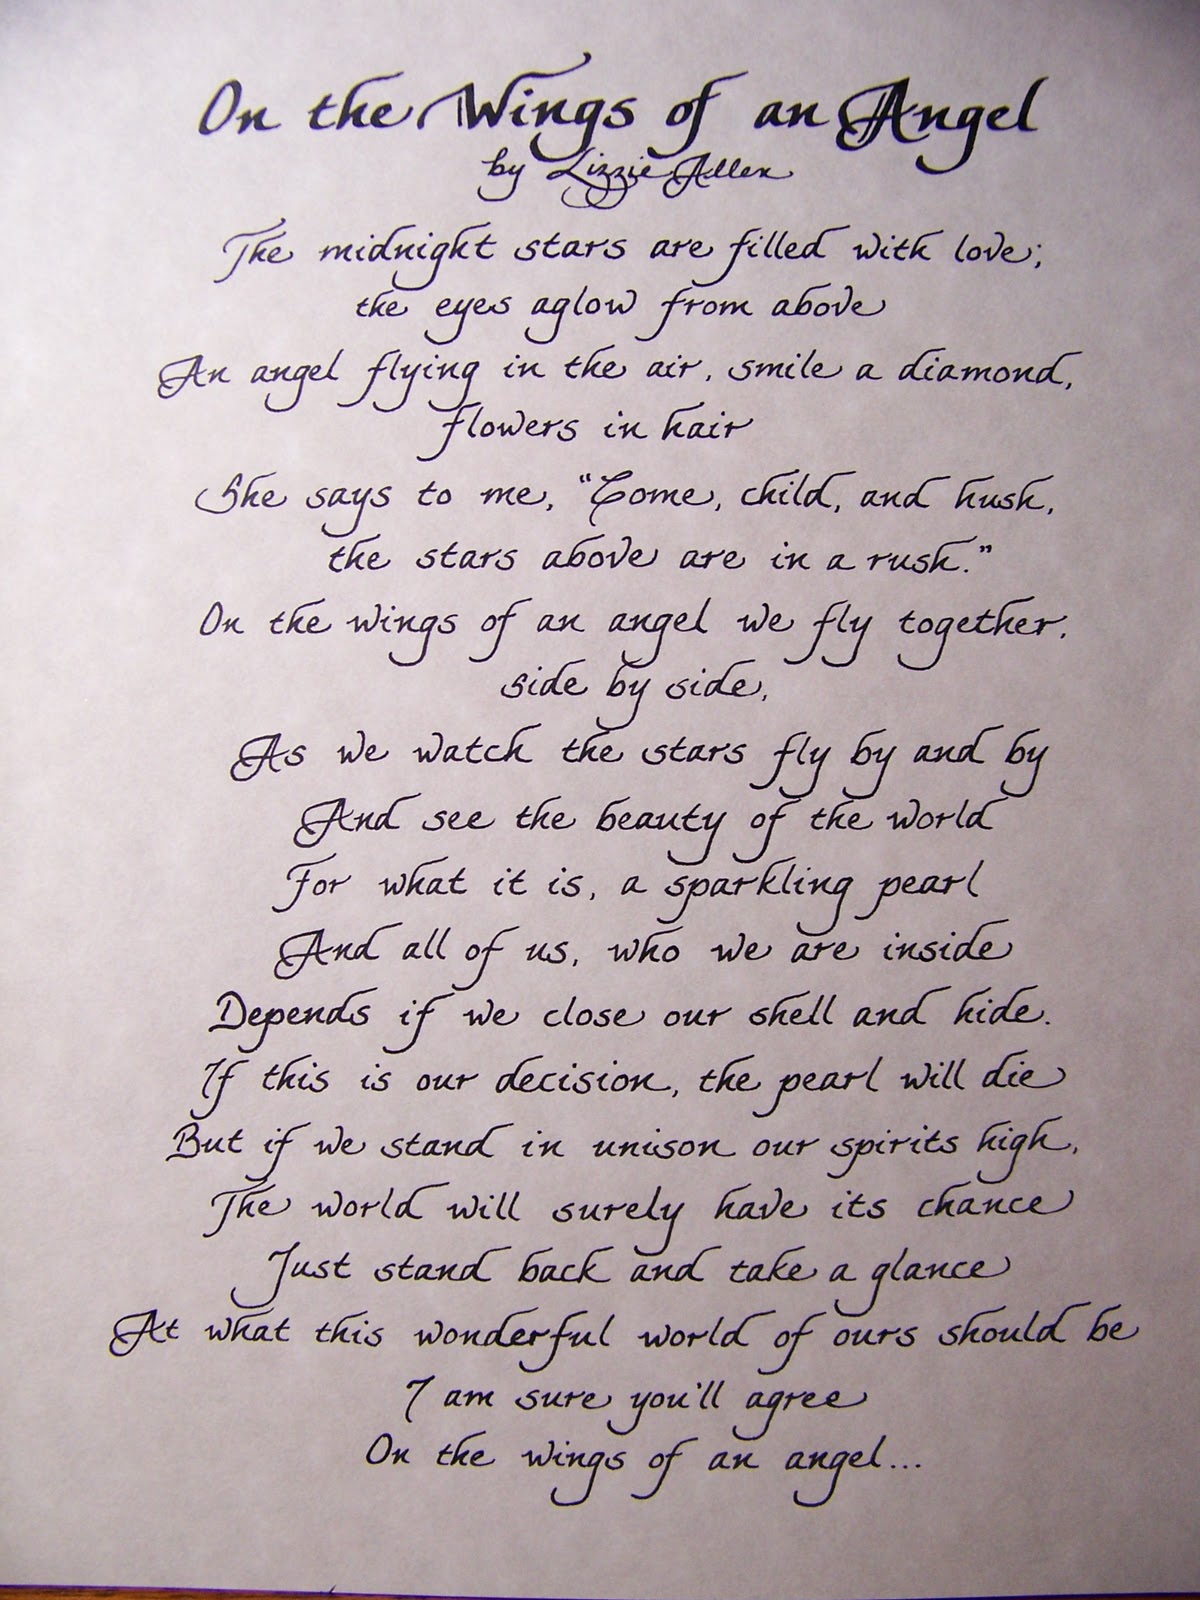 On the Wings of an Angel
by Lizzie Allen
The midnight stars are filled with love;
the eyes aglow from above
An angel flying in the air, smile a diamond,
flowers in hair
She says to me, "Come, child, and hush,
the stars above are in a rush."
On the wings of an angel we fly together,
side by side,
As we watch the stars fly by and by
And see the beauty of the world
For what it is, a sparkling pearl
And all of us, who we are inside
Depends if we close our shell and hide.
If this is our decision, the pearl will die
But if we stand in unison our spirits high,
The world will surely have its chance
Just stand back and take a glance
At what this wonderful world of ours should be
I am sure you'll agree
On the wings of an angel...